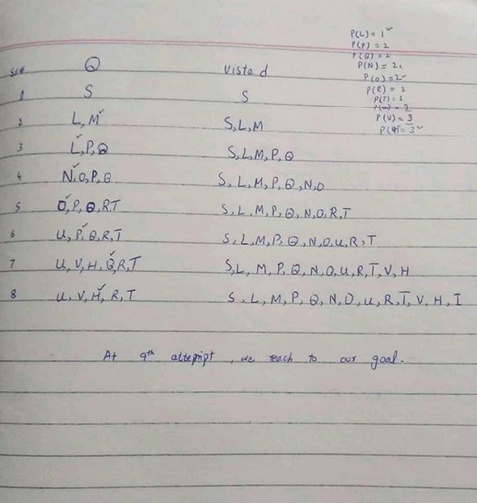 P(L) = 1
P(P) = 2
P(Q) = 2
P(N) = 2
P(O) = 2
P(R) = 3
P(V) = 3
Q Visted
1 S S
2 L, M S, L, M
3 L, P, Q S, L, M, P, Q
4 N, O, P, Q S, L, M, P, Q, N, O
5 O, P, Q, R, T S, L, M, P, Q, N, O, R, T
6 U, P, Q, R, T S, L, M, P, Q, N, O, U, R, T
7 U, V, H, Q, R, T S, L, M, P, Q, N, O, U, R, T, V, H
8 U, V, H, R, T S, L, M, P, Q, N, O, U, R, T, V, H, I
At 9th attempt, we reach to our goal.